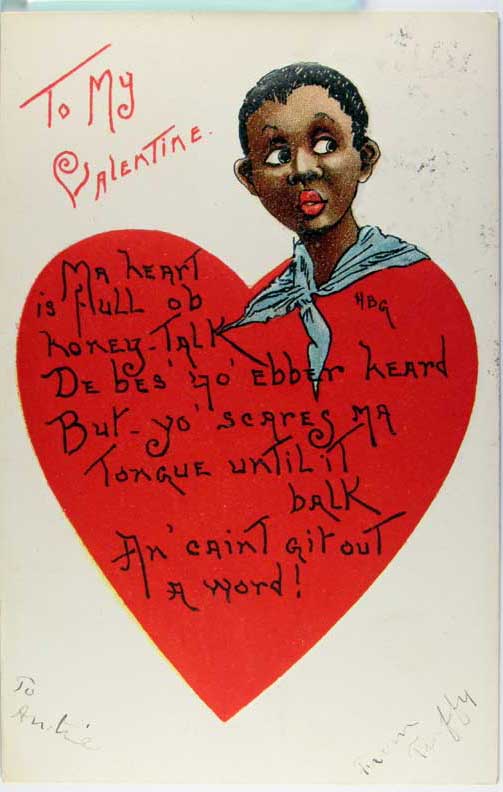 To My
Valentine.
Ma heart
is full ob
honey-Talk
De bes' yo' ebber heard
But - yo' scares ma
Tongue until it
balk
An' caint git out
a word!
HBG
To
Auntie
From